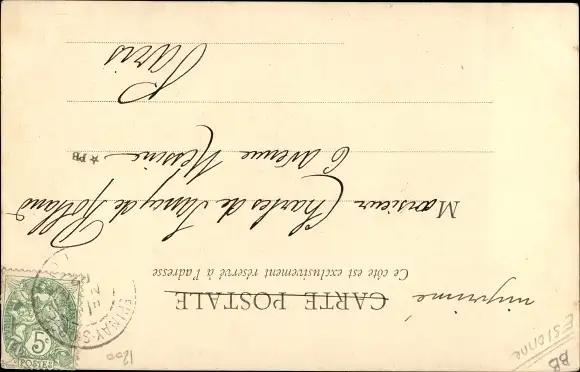 BB
ESSONNE
imprimé
CARTE POSTALE
Ce côté est exclusivement réservé à l'adresse
1200
EPINAY-S
5c
POSTES
Monsieur Charles de Sancy de Rolland
6 avenue Messine
★ PB
Paris